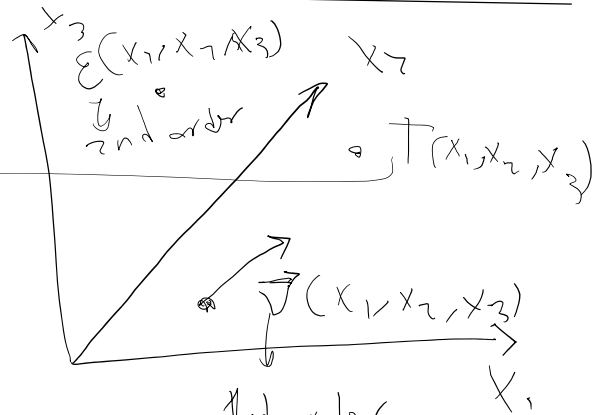 X₃
ε(X₁, X₂, X₃)
X₂
2nd order
T(X₁, X₂, X₃)
V⃗(X₁, X₂, X₃)
X₁